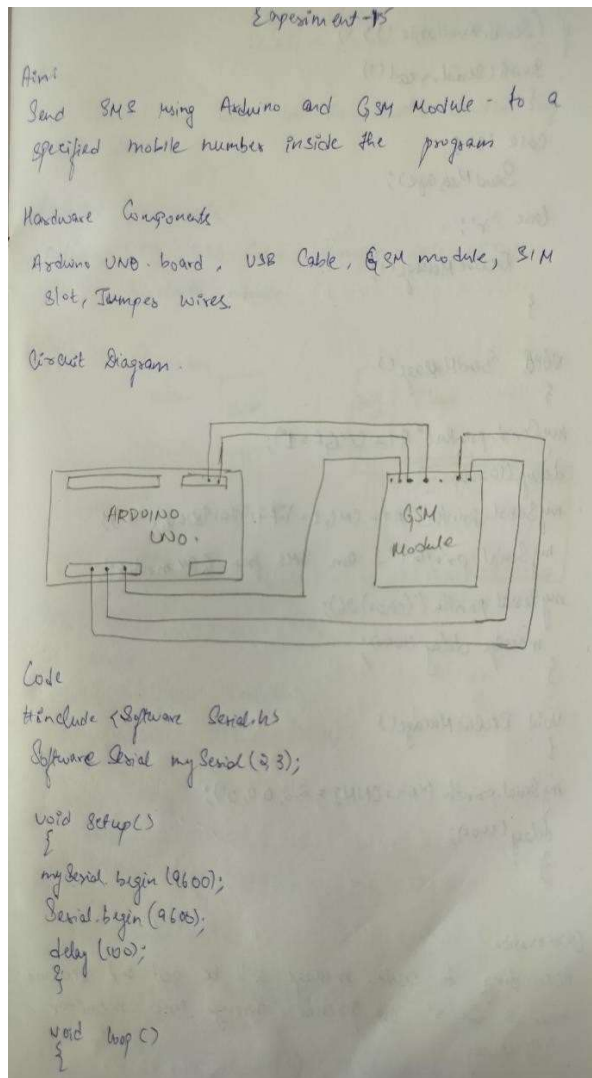 Experiment-15
Aim:
Send SMS using Arduino and GSM Module - to a
specified mobile number inside the program
Hardware Components
Arduino UNO board, USB Cable, GSM module, SIM
Slot, Jumper wires
Circuit Diagram.
ARDUINO
UNO.
GSM
Module
Code
#include <Software Serial.h>
Software Serial mySerial (2, 3);
void setup()
{
mySerial.begin (9600);
Serial.begin (9600);
delay (100);
}
void loop ()
{